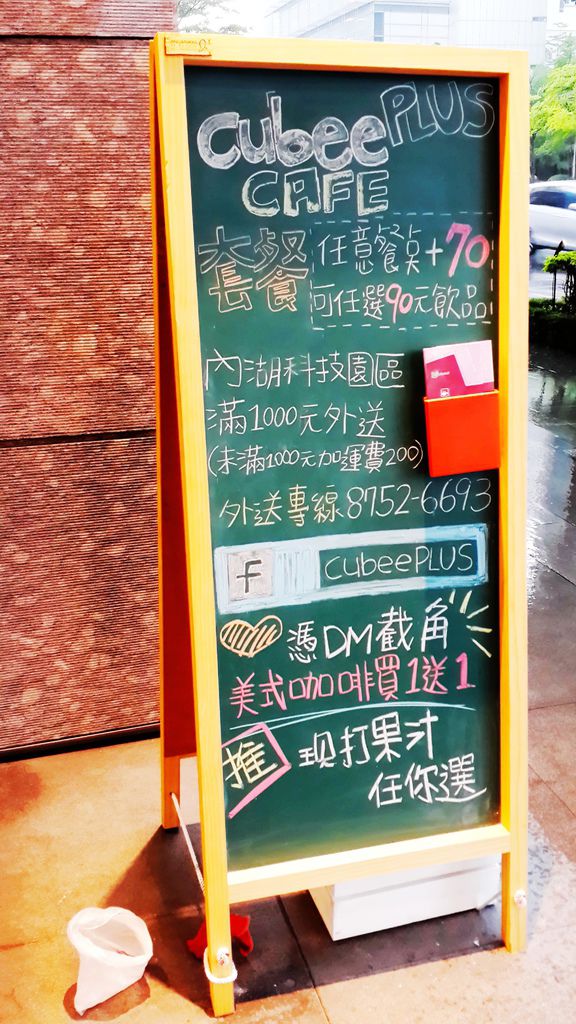 cubee PLUS
CAFE
套餐 任意餐點+70
可任選90元飲品
內湖科技園區
滿1000元外送
(未滿1000元加運費200)
外送專線8752-6693
f cubeePLUS
憑DM截角
美式咖啡買1送1
推 現打果汁
任你選